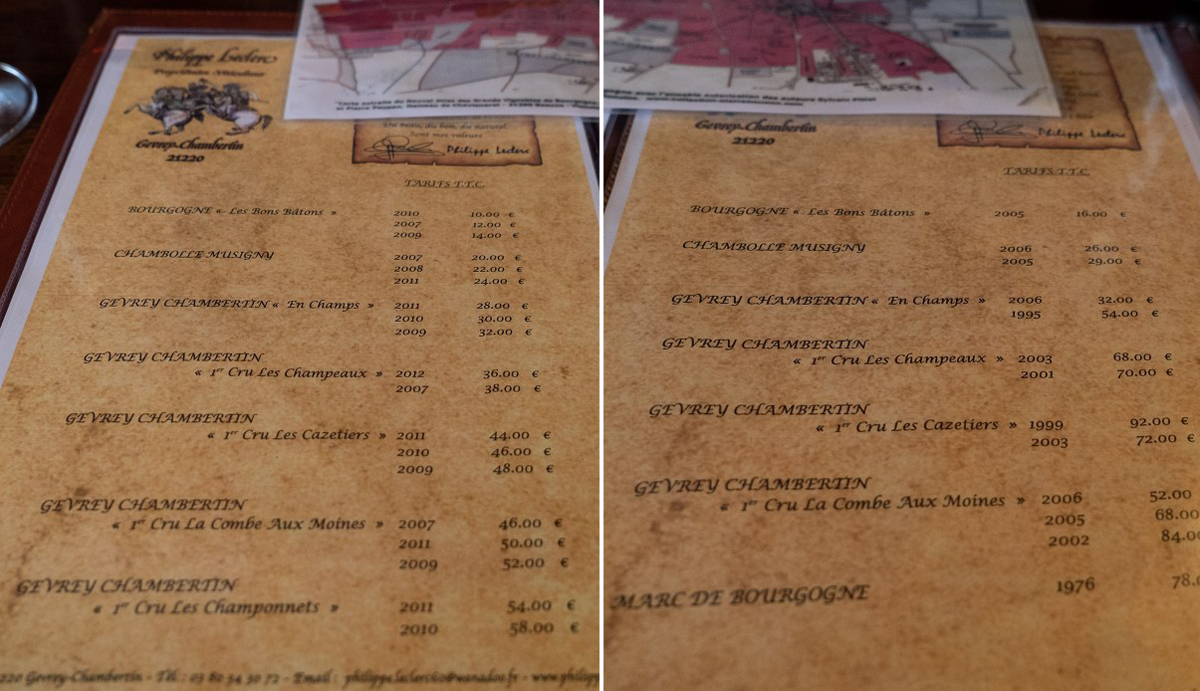 Philippe Leclerc
Propriétaire-Viticulteur
Gevrey-Chambertin
21220
*Carte extraite du Nouvel Atlas des Grands Vignobles de Bourgogne
Du beau, du bon, du naturel
Sont mes valeurs
Philippe Leclerc
TARIFS T.T.C.
BOURGOGNE « Les Bons Bâtons » 2010 10.00 €
2007 12.00 €
2009 14.00 €
CHAMBOLLE MUSIGNY 2007 20.00 €
2008 22.00 €
2011 24.00 €
GEVREY CHAMBERTIN « En Champs » 2011 28.00 €
2010 30.00 €
2009 32.00 €
GEVREY CHAMBERTIN
« 1er Cru Les Champeaux » 2012 36.00 €
2007 38.00 €
GEVREY CHAMBERTIN
« 1er Cru Les Cazetiers » 2011 44.00 €
2010 46.00 €
2009 48.00 €
GEVREY CHAMBERTIN
« 1er Cru La Combe Aux Moines » 2007 46.00 €
2011 50.00 €
2009 52.00 €
GEVREY CHAMBERTIN
« 1er Cru Les Champonnets » 2011 54.00 €
2010 58.00 €
220 Gevrey-Chambertin - Tél : 03 80 34 30 72 - Email : philippe.leclerc60@wanadoo.fr - www.philipp
Gevrey-Chambertin
21220
Philippe Leclerc
TARIFS T.T.C.
BOURGOGNE « Les Bons Bâtons » 2005 16.00 €
CHAMBOLLE MUSIGNY 2006 26.00 €
2005 29.00 €
GEVREY CHAMBERTIN « En Champs » 2006 32.00 €
1995 54.00 €
GEVREY CHAMBERTIN
« 1er Cru Les Champeaux » 2003 68.00 €
2001 70.00 €
GEVREY CHAMBERTIN
« 1er Cru Les Cazetiers » 1999 92.00 €
2003 72.00 €
GEVREY CHAMBERTIN
« 1er Cru La Combe Aux Moines » 2006 52.00
2005 68.00
2002 84.0
MARC DE BOURGOGNE 1976 78.